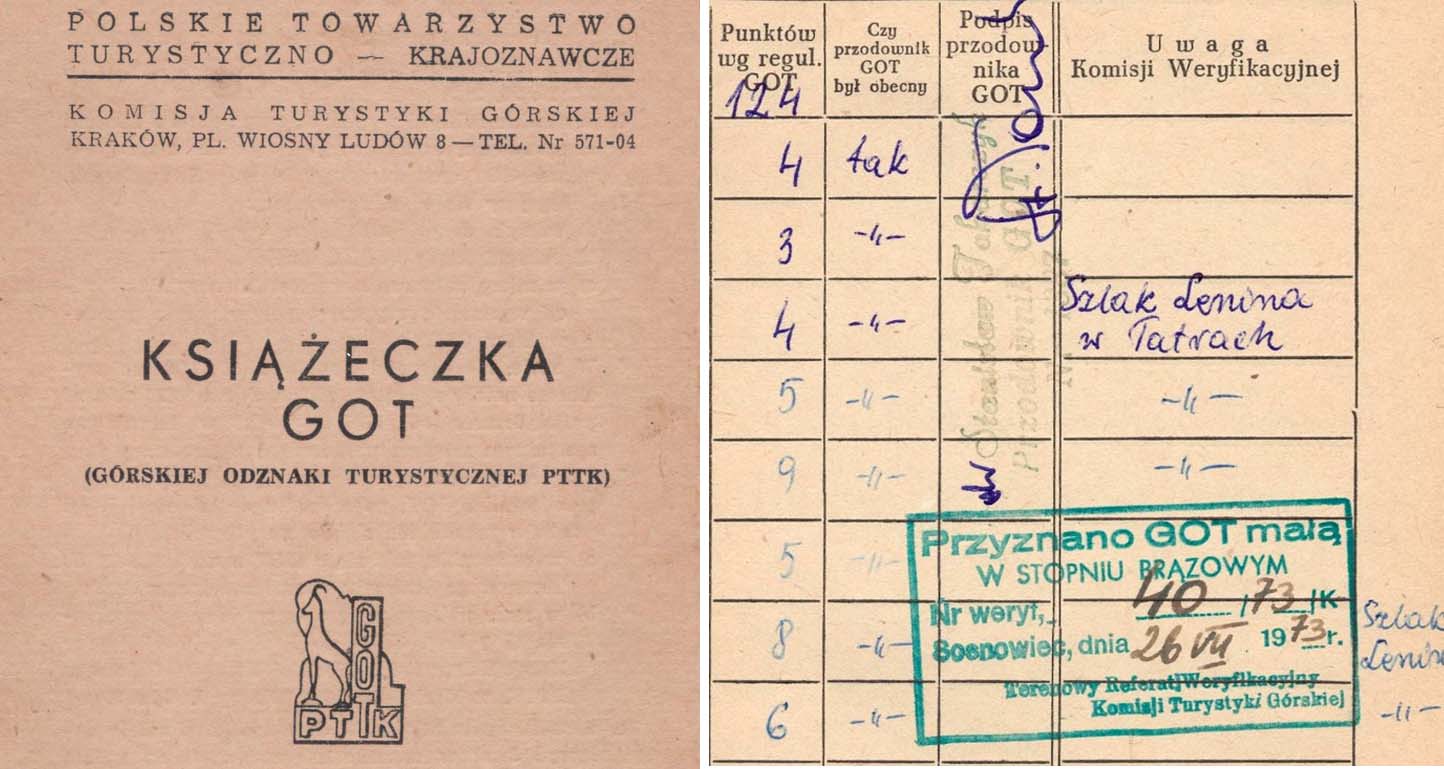 POLSKIE TOWARZYSTWO
TURYSTYCZNO — KRAJOZNAWCZE
KOMISJA TURYSTYKI GÓRSKIEJ
KRAKÓW, PL. WIOSNY LUDÓW 8 — TEL. Nr 571-04
KSIĄŻECZKA
GOT
(GÓRSKIEJ ODZNAKI TURYSTYCZNEJ PTTK)
GOT
PTTK
Punktów
wg regul.
GOT
Czy
przodownik
GOT
był obecny
Podpis
przodow-
nika
GOT
Uwaga
Komisji Weryfikacyjnej
124
4 tak
3 -„-
4 -„- Szlak Lenina
w Tatrach
5 -„- -„-
9 -„- -„-
5 -„-
8 -„- Szlak
6 -„- -„-
Przodownik GOT
Przyznano GOT małą
W STOPNIU BRĄZOWYM
Nr weryf. 40/73/K
Sosnowiec, dnia 26 VII 1973 r.
Terenowy Referat Weryfikacyjny
Komisji Turystyki Górskiej